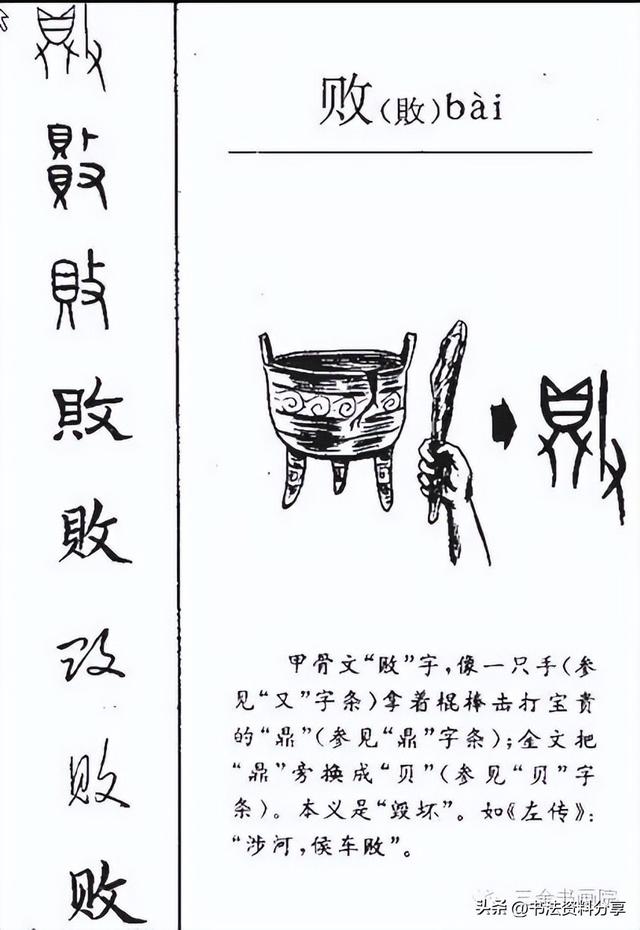 败(敗)bài
甲骨文“败”字,像一只手(参
见“又”字条)拿着棍棒击打宝贵
的“鼎”(参见“鼎”字条);金文把
“鼎”旁换成“贝”(参见“贝”字
条)。本义是“毁坏”。如《左传》:
“涉河,侯车败”。
敗
敗
敗
败
败
三余书画院
头条@书法资料分享